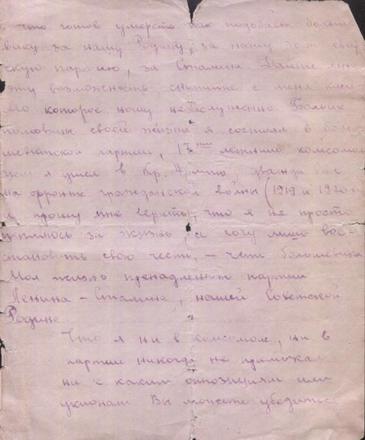 что готов умереть как подобает больше-
вику за нашу Родину, за нашу
скую партию, за Сталина. Дайте мне
эту возможность снимите с меня
которое ношу незаслуженно. Больше
половины своей жизни я состоял в боль-
шевистской партии, 17 летним комсомоль-
цем я ушел в Кр. Армию, дважды был
на фронте гражданской войны (1919 и 1920
я прошу мне верить, что я не просто
цепляюсь за жизнь, а хочу лишь вос-
становить свою честь, – честь большевика
Моя жизнь принадлежит партии
Ленина – Сталина, нашей Советской
Родине.
Что я ни в комсомоле, ни в
партии никогда не примыкал
ни к каким оппозициям или
уклонам Вы можете убедиться